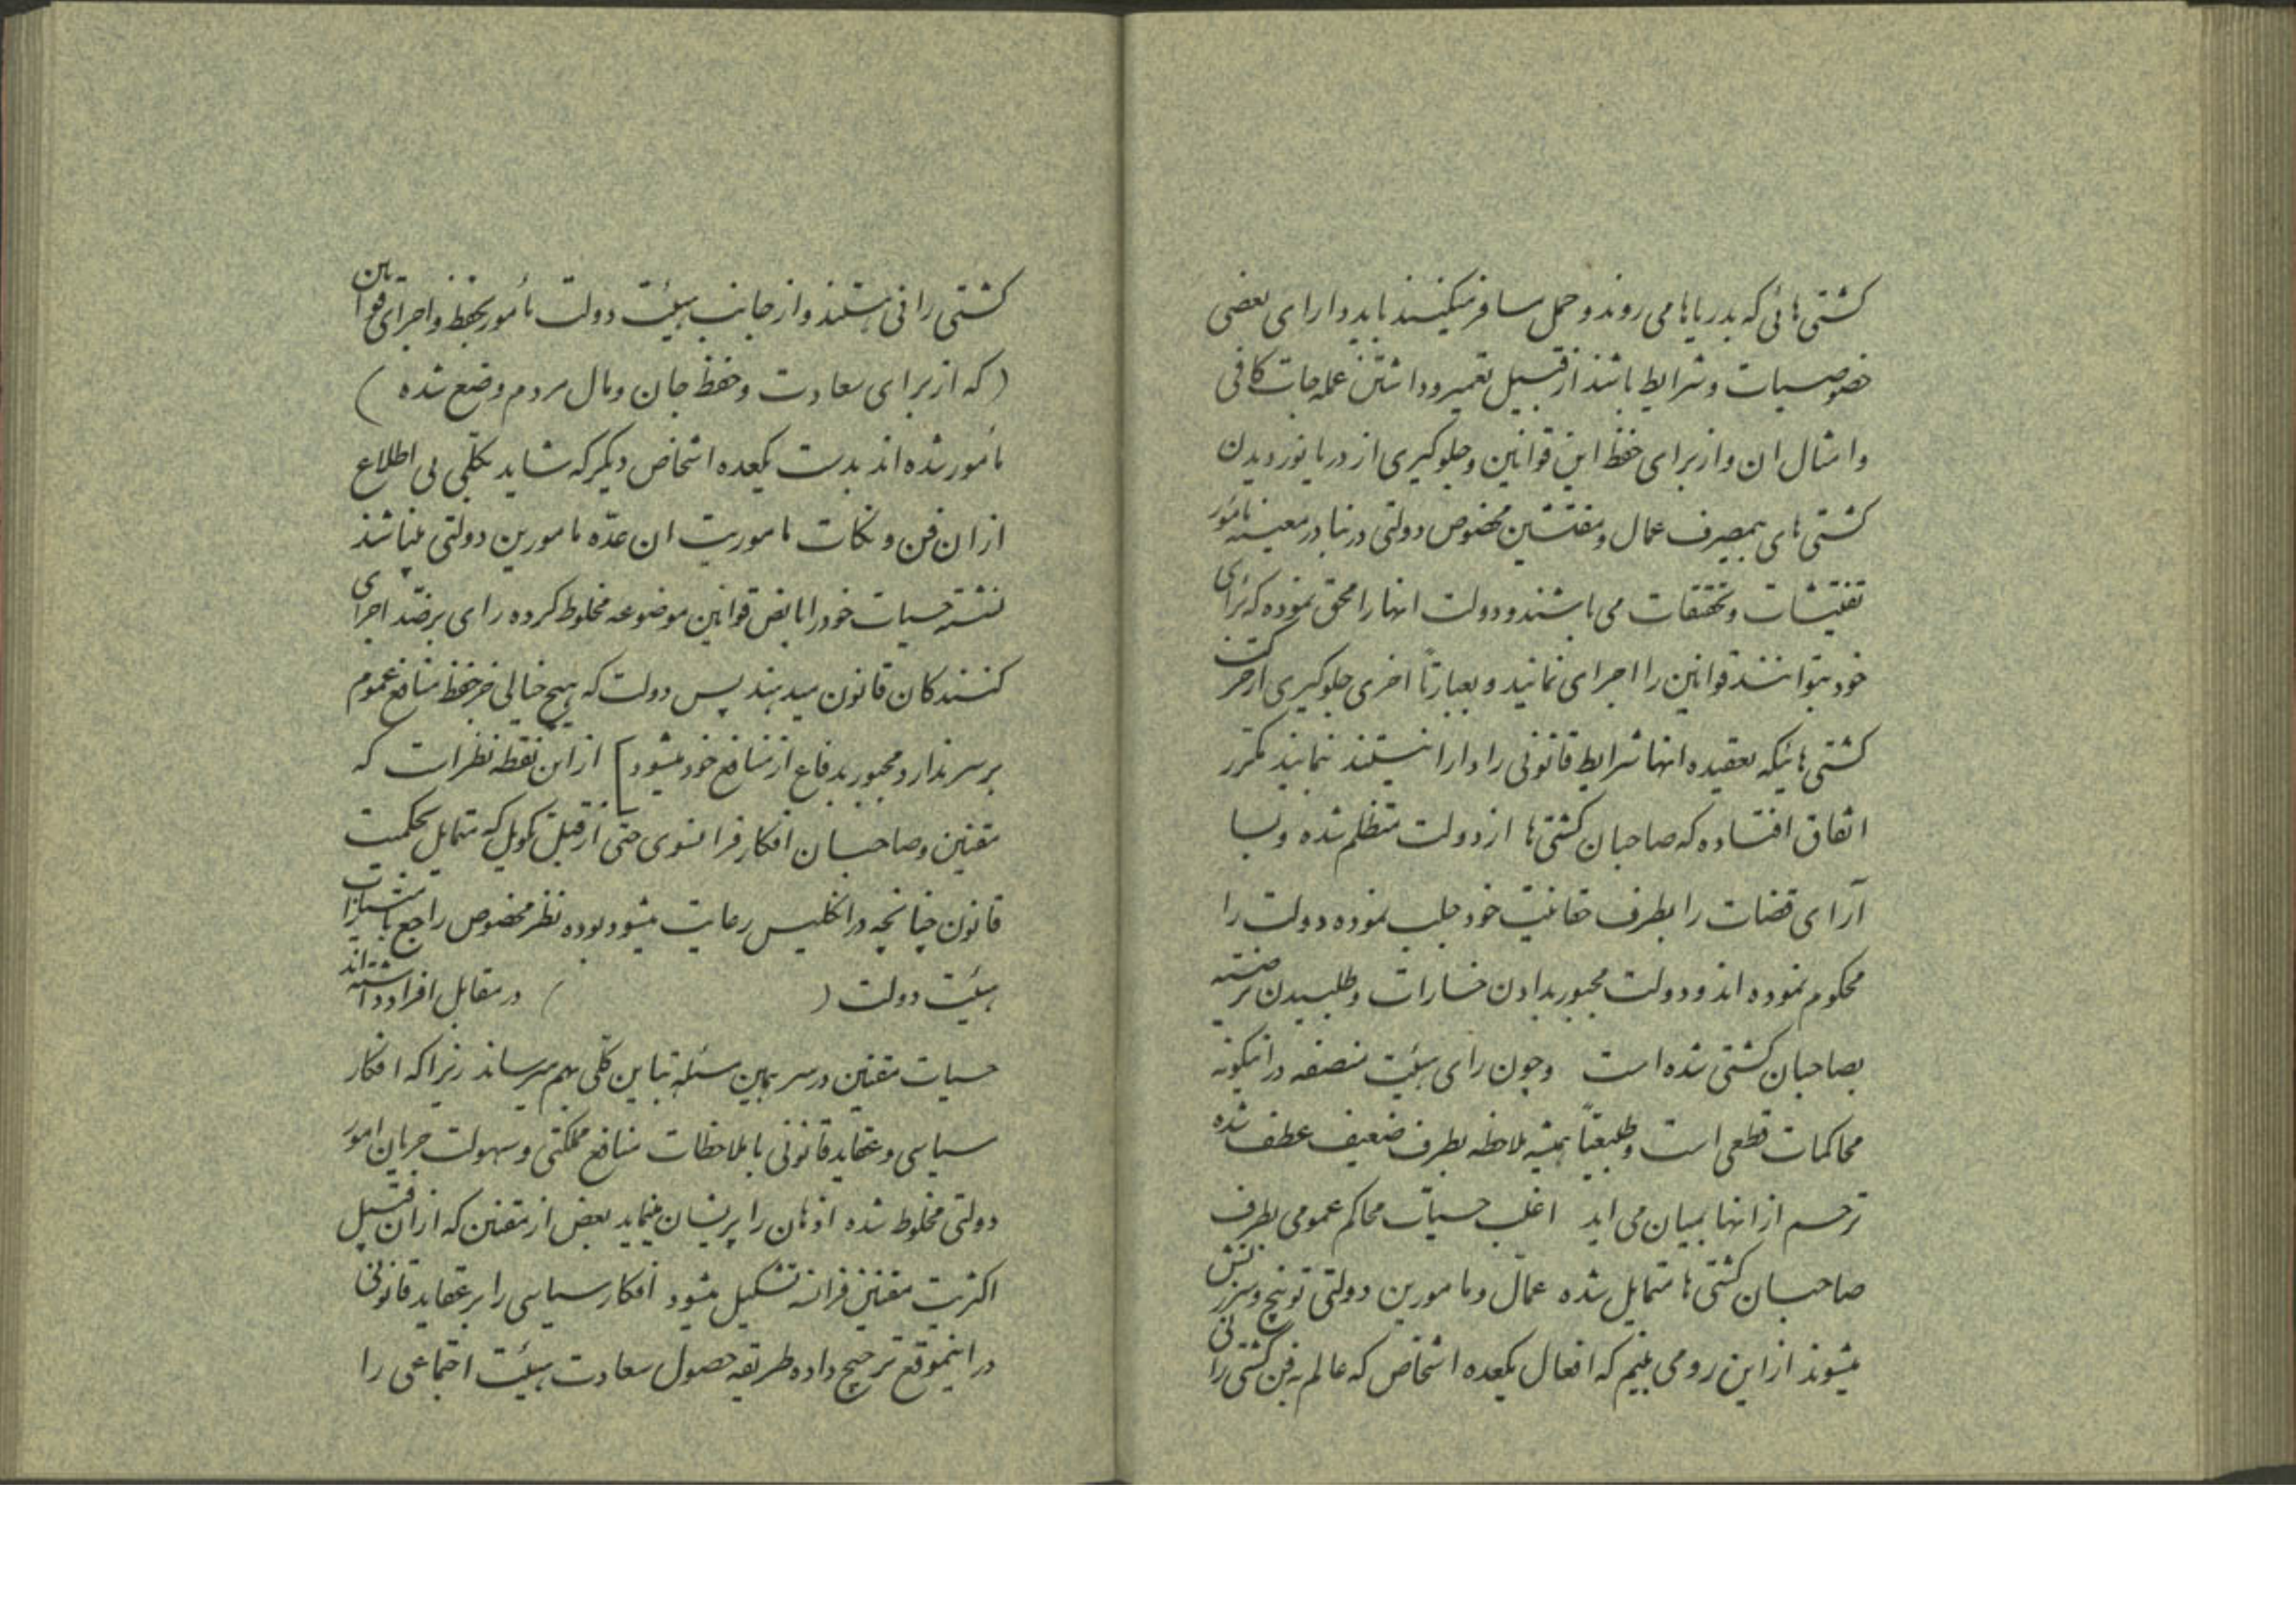 کشتی هائی که بدریاها می روند و حمل مسافر میکنند باید دارای بعضی
خصوصیات و شرایط باشند از قبیل تعمیر و داشتن عمله جات کافی
و امثال ان و از برای حفظ این قوانین و جلوگیری از دریا نوردیدن
کشتی های بمصرف عمال و مفتشین مخصوص دولتی در بنادر معینه مأمور
تفتیشات و تحقیقات می باشند و دولت انها را محق نموده که برای
خود بتوانند قوانین را اجرای نمایند و بعبارتاً اخری جلوگیری از حرکت
کشتی هائیکه بعقیده انها شرایط قانونی را دارا نیستند نمایند مکرر
اتفاق افتاده که صاحبان کشتی ها از دولت متظلم شده و بسا
آرای قضات را بطرف حقانیت خود جلب نموده دولت را
محکوم نموده اند و دولت مجبور بدادن خسارات و طلبیدن ترضیه
بصاحبان کشتی شده است و چون رای هیئت منصفه در اینگونه
محاکمات قطعی است و طبیعتاً همیشه ملاحظه بطرف ضعیف عطف شده
ترحم از انها بمیان می اید اغلب حسیات محاکم عمومی بطرف
صاحبان کشتی ها متمایل شده عمّال و مامورین دولتی توبیخ و سرزنش
میشوند از این رو می بینیم که افعال یکعده اشخاص که عالم به فن کشتی رانی
کشتی رانی هستند و از جانب هیئت دولت مأمور بحفظ و اجرای قوانین
(که از برای سعادت و حفظ جان و مال مردم وضع شده)
مأمور شده اند بدست یکعده اشخاص دیگر که شاید بکلی بی اطلاع
از ان فن و نکات ماموریت ان عدّه مامورین دولتی میباشند
حسیات خود را با بعض قوانین موضوعه مخلوط کرده رای برضد اجرای
کنندکان قانون میدهند پس دولت که هیچ خیالی جز حفظ منافع عموم
بر سر ندارد مجبور بدفاع از منافع خود میشود] از این نقطه نظرات که
مقنین و صاحبان افکار فرانسوی حتی از قبیل توکویل که متمایل بحکمیت
قانون چنانچه در انگلیس رعایت میشود بوده نظر مخصوص راجع بامتیازات
هیئت دولت ( ) در مقابل افراد داشته اند
حسیات مقنین در سر همین مسئله تباین کلی بهم میرساند زیرا که افکار
سیاسی و عقاید قانونی با ملاحظات منافع مملکتی و سهولت جریان امور
دولتی مخلوط شده اذهان را پریشان مینماید بعض از مقنین که از ان قبیل
اکثریت مقنین فرانسه تشکیل میشود افکار سیاسی را بر عقاید قانونی
در اینموقع ترجیح داده طریقه حصول سعادت هیئت اجتماعی را